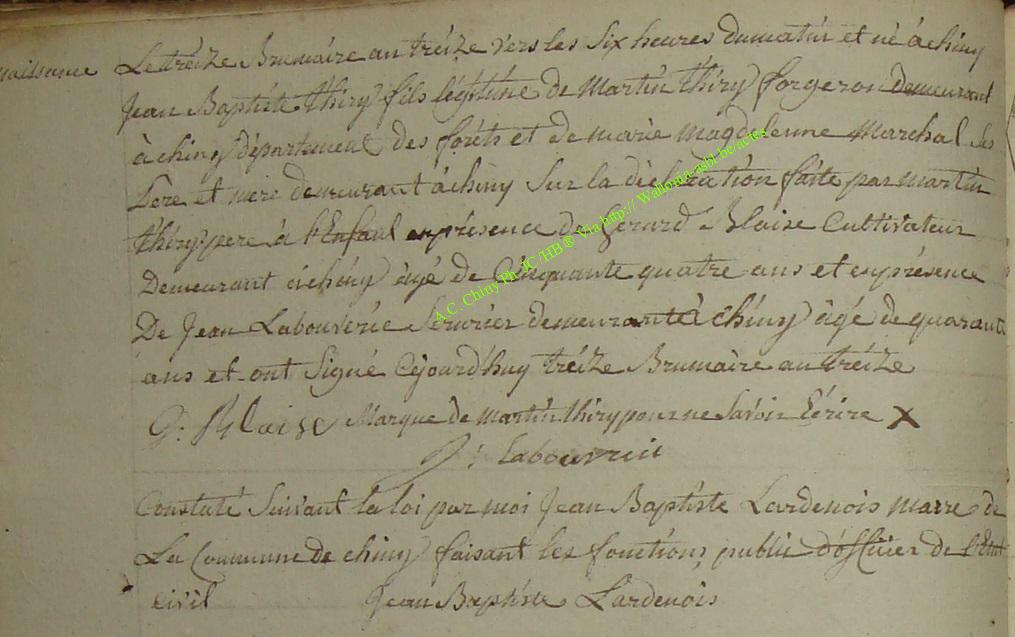 naissance Le treize Brumaire an treize vers les Six heures dumatin et né à chiny
Jean Baptiste thiry fils légitime de Martin thiry forgeron demeurant
à chiny département des forêts et de marie magdelenne Marchal Ses
Pere et mere demeurant à chiny Sur la déclaration faite par martin
thiry pere à l'Enfant en présence de Gerard Blaise Cultivateur
Demeurant à chiny âgé de Cinquante quatre ans et en présence
De Jean Labouverie Serurier demeurante à chiny âgé de quarante
ans et ont Signé Cejourd'huy treize Brumaire an treize
G: Blaise Marque de martin thiry pour ne Savoir Ecrire X
J: Labouvrie
Constaté Suivant la loi par moi Jean Baptiste Lardenois maire de
La Commune de chiny faisant les fonctions public d'officier de l'Etat
civil Jean Baptiste Lardenois
A.C. Chiny Ph JC /HB ® Via http:// Wallonia-asbl.be/actes